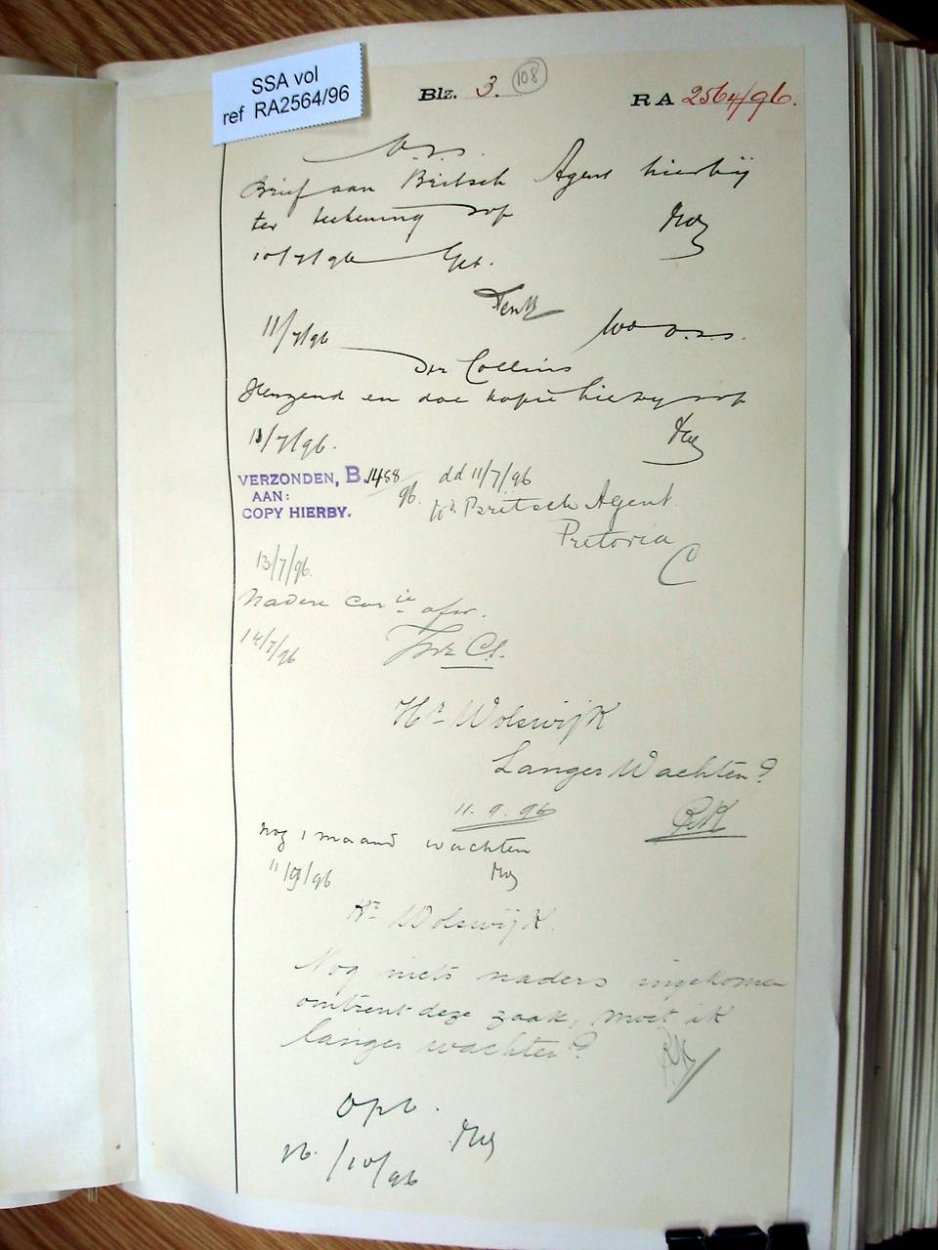 SSA vol
ref RA2564/96
Blz. 3. 108
RA 2564/96.
Brief aan Britsch Agent hierbij
ter teekening
10/7/96 Get.
11/7/96
Dr Collins
en doe kopie hierby
11/7/96.
VERZONDEN, B. 1488/96. dd 11/7/96
AAN: Hr. Britsch Agent
COPY HIERBY.
Pretoria
C
13/7/96.
Nadere Corie afw.
14/7/96
Hr Wolswijk
Langer Wachten?
11.9.96
RK
nog 1 maand wachten
11/9/96
Hr Wolswijk.
Nog niets naders ingekomen
omtrent deze zaak, moet ik
langer wachten?
RK
Opb.
26/10/96